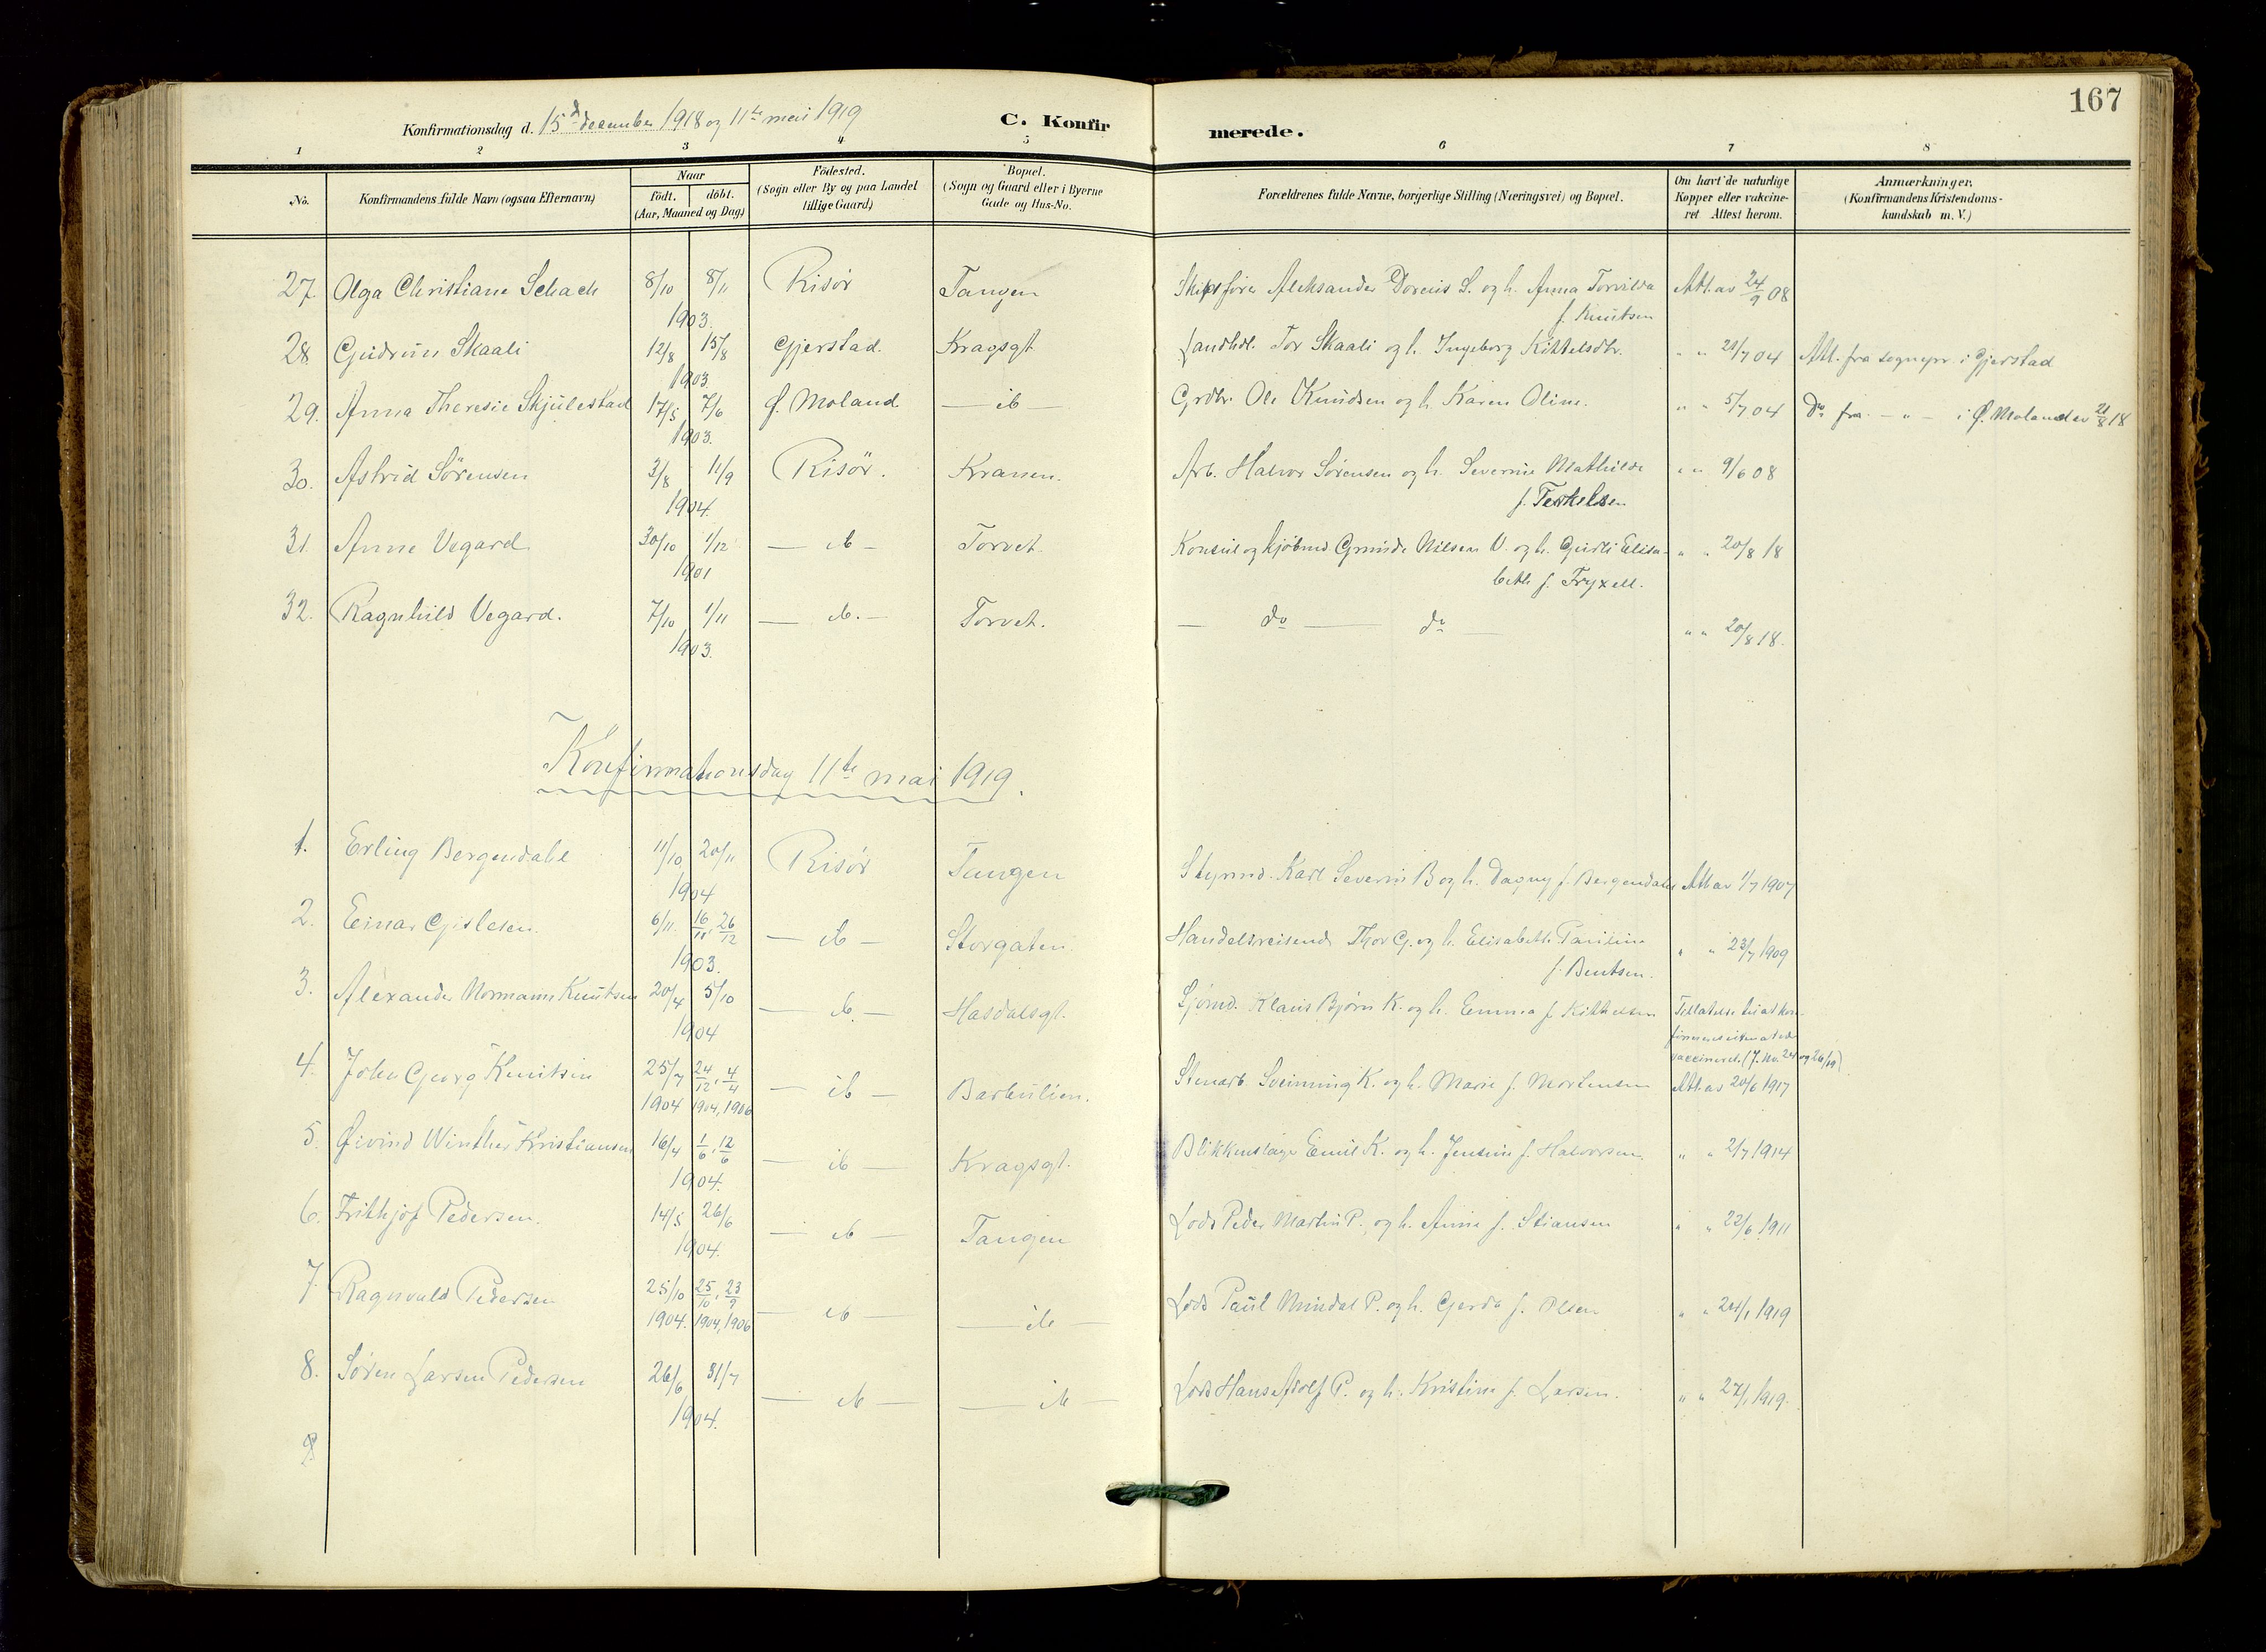 167
Konfirmationsdag d. 15d december 1918 og 11te mai 1919 C. Konfirmerede.
1 2 3 4 5 6 7 8
No.
Konfirmandens fulde Navn (ogsaa Efternavn)
Naar
födt. döbt.
(Aar, Maaned og Dag)
Födested.
(Sogn eller By og paa Landet
tillige Gaard)
Bopæl.
(Sogn og Gaard eller i Byerne
Gade og Hus-No.
Forældrenes fulde Navne, borgerlige Stilling (Næringsvei) og Bopæl.
Om havt de naturlige
Kopper eller vakcine-
ret Attest herom.
Anmærkninger.
(Konfirmandens Kristendoms-
kundskab m. V.)
27. Olga Christiane Schach 8/10 8/11 Risör Tangen Skipsfører Aleksander S. og h. Anna Torvilda Att. av 24/9 08
1903. f. Knutsen
28 Gudrun Skaali 12/8 15/8 Gjerstad. Kragsgt Landhdl. Tor Skaali og h. Ingeborg Kittelsdtr. " " 21/7 04 Att. fra sognepr. i Gjerstad
1903
29. Anna Theresie Skjulestad 17/5 7/6 Ø. Moland. — ib — Grdbr. Ole Knudsen og h. Karen Oline. " " 5/7 04 Do fra — " — i Ø. Moland av 21/8 18
1903.
30. Astrid Sörensen 3/8 11/9 Risör. Kranen. Arb. Halvor Sörensen og h. Severine Mathilde " " 9/6 08
1904. f. Terkelsen
31. Anne Vegard 30/10 1/12 — ib — Torvet. Konsul og kjöbmd Grunde Nilsen V. og h. Gurli Elisa- " " 20/8 18
1901 beth f. Fryxell.
32. Ragnhild Vegard. 7/10 1/11 — ib. — Torvet. — do — do — " " 20/8 18.
1903.
Konfirmationsdag 11te mai 1919.
1. Erling Bergendahl 11/10 20/11 Risör Tangen Styrmd. Karl Severin B og h. Dagny f. Bergendahl Att av 1/7 1907
1904
2. Einar Gislesen. 6/11 16/11, 26/12 — ib — Storgaten. Handelsreisende Thor G. og h. Elisabeth Pauline " " 23/7 1909
1903. f. Bentsen.
3. Alexander Normann Knutsen 20/4 5/10 — ib. — Hasdalsgt. Sjömd. Klaus Björn K. og h. Emma f. Kittelsen Tillatelse til at kon-
1904 firmeres uten at være
vaccineret. (J. No. 24 og 26/19)
4. John Georg Knutsen 25/7 24/12, 4/4 — ib — Barbulien. Stenarb. Sveinung K. og h. Marie f. Mortensen Att. av 20/6 1917
1904 1904, 1906
5. Øivind Winther Kristiansen 16/4 1/6, 12/6 — ib — Kragsgt. Blikkenslager Emil K. og h. Jensine f. Halvorsen. " " 2/7 1914
1904.
6. Frithjof Pedersen. 14/5 26/6 — ib — Tangen Lods Peder Martin P. og h. Anne f. Stiansen " " 22/6 1911
1904.
7. Ragnvald Pedersen 25/10 25/10, 23/9 — ib — — ib — Lods Paul P. og h. Gerda f. Olsen " " 24/1 1919
1904. 1904, 1906
8. Sören Larsen Pedersen 26/6 31/7 — ib — — ib — Lods Hans Adolf P. og h. Kristine f. Larsen. " " 27/1 1919.
1904.
9